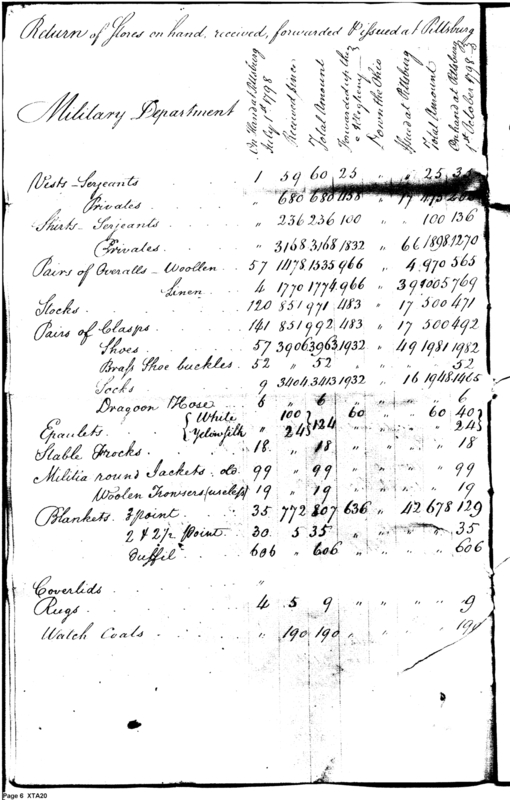 Return of Stores on hand, received, forwarded & issued at Pittsburg
Military Department
On Hand at Pittsburg July 1st 1798
Received since
Total Amount
Forwarded up the Allegheny
Down the Ohio
Issued at Pittsburg
Total Amount
On hand at Pittsburg 1st October 1798
Vests Serjeants 1 59 60 25 " " 25 35
Privates " 680 680 458 " 17 475
Shirts Serjeants " 236 236 100 100 136
Privates " 3168 3168 1832 " 66 1898 1270
Pairs of Overalls Woollen 57 1478 1535 966 " 4 970 565
Linen 4 1770 1774 966 " 39 1005 769
Stocks 120 851 971 483 " 17 500 471
Pairs of Clasps 141 851 992 483 " 17 500 492
Shoes 57 3906 3963 1932 " 49 1981 1982
Brass Shoe buckles 52 " 52 52
Socks 9 3404 3413 1932 " 16 1948 1465
Dragoon Hose 6 " 6 " " " " 6
Epaulets { White " 100 } 124 60 " " 60 40 }
{ Yellow silk " 24 } " " " " 24 }
Stable Frocks 18 " 18 " " " " 18
Militia round Jackets do 99 " 99 " " " " 99
Woolen Trowsers (useless) 19 " 19 " " " " 19
Blankets 3 point 35 772 807 636 " 42 678 129
2 & 2 1/2 Point 30 5 35 " " " " 35
duffil 606 " 606 " " " " 606
Coverlids "
Rugs 4 5 9 " " " " 9
Watch Coats " 190 190 " " " " 190
Page 6 XTA20